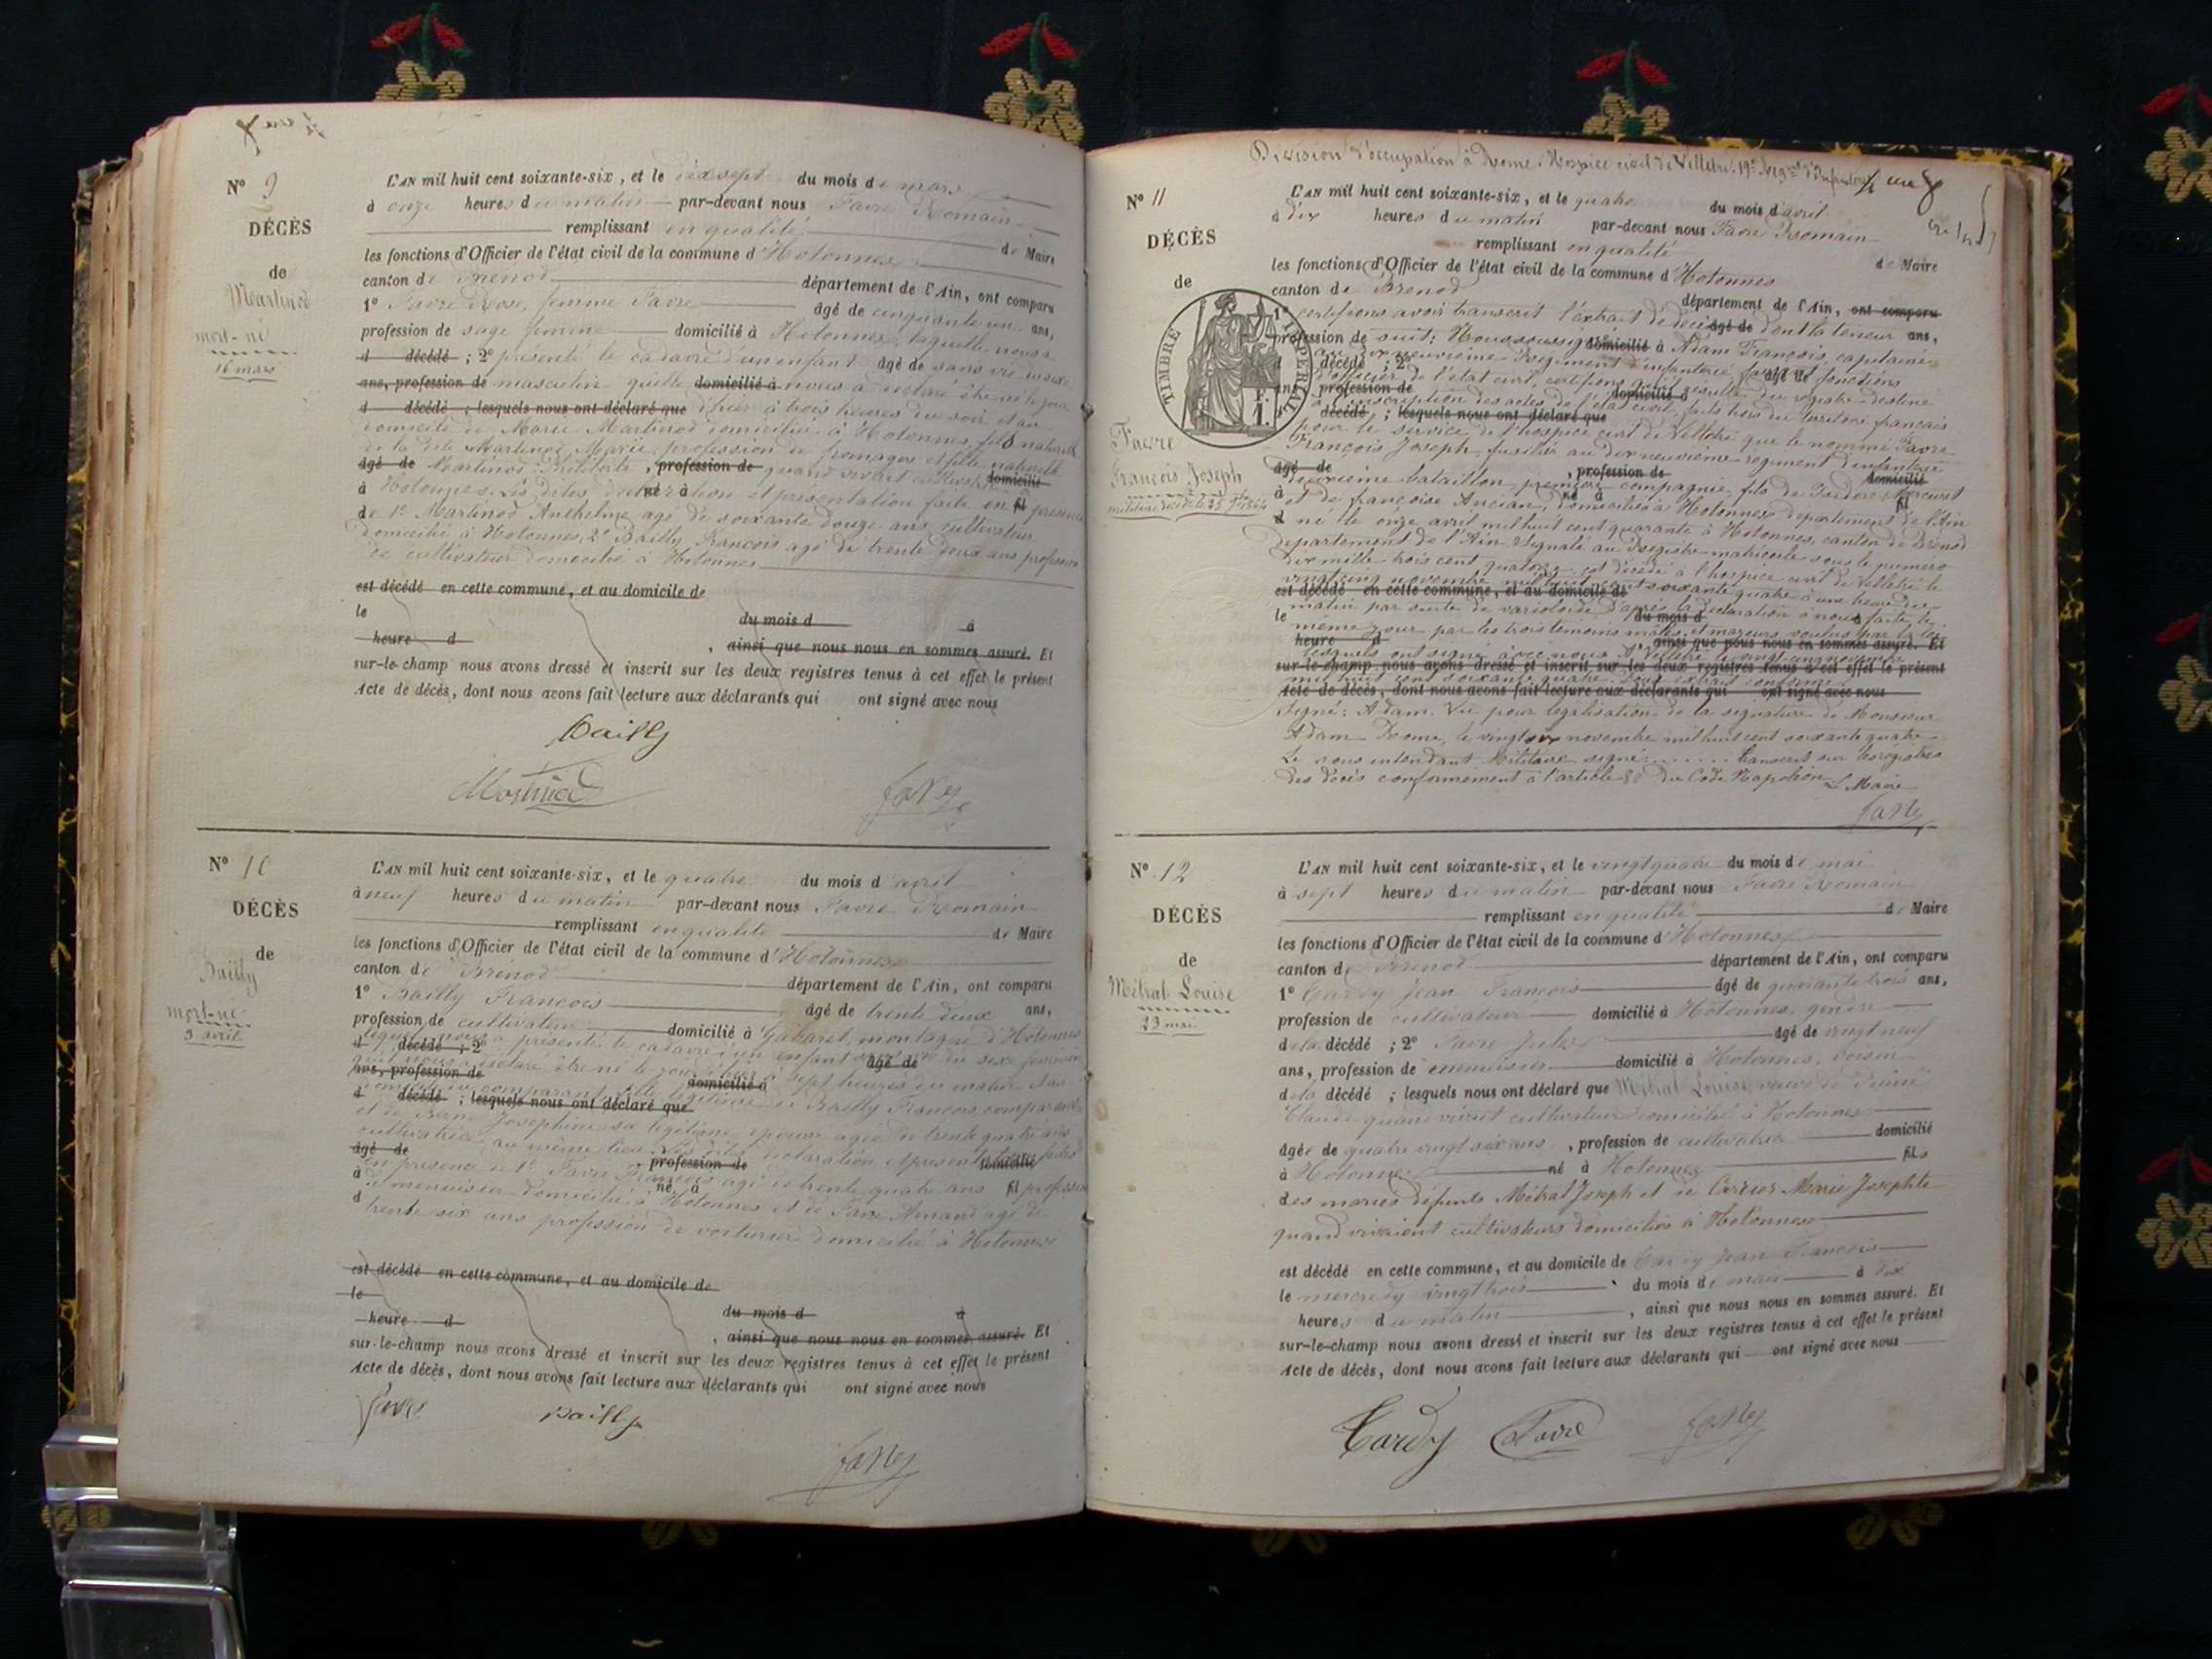 N° 9
DÉCÈS
de
Martinod
mort-né
16 mars
L'AN mil huit cent soixante-six, et le dix sept du mois de mars
à onze heures du matin par-devant nous Favre Romain
remplissant en qualité de Maire
les fonctions d'Officier de l'état civil de la commune d'Hotonnes
canton de Brenod département de l'Ain, ont comparu
1° Favre Rose, femme Favre âgé de cinquante un ans,
profession de sage femme domicilié à Hotonnes, laquelle nous a
d décédé ; 2° présenté le cadavre d'un enfant âgé de sans vie du sexe
ans, profession de masculin qu'elle domicilié à nous a déclaré être né le jour
d décédé ; lesquels nous ont déclaré que d'hier à trois heures du soir et au
domicile de Marie Martinod domiciliée à Hotonnes, fils naturel
de la dite Martinod Marie profession de fromagère et fille naturelle
âgé de Martinod , profession de quand vivait cultivatrice domicilié
à Hotonnes. Les dites né à déclaration et présentation faite en fil présence
de 1° Martinod Anthelme agé de soixante douze ans, cultivateur
domicilié à Hotonnes, 2° Bailly François agé de trente deux ans, profession
de cultivateur domicilié à Hotonnes
est décédé en cette commune, et au domicile de
le du mois d à
heure d , ainsi que nous nous en sommes assuré. Et
sur-le-champ nous avons dressé et inscrit sur les deux registres tenus à cet effet le présent
Acte de décès, dont nous avons fait lecture aux déclarants qui ont signé avec nous
Bailly
Martinod
Favre
N° 10
DÉCÈS
de
Bailly
mort-né
3 avril
L'AN mil huit cent soixante-six, et le quatre du mois d'avril
à neuf heures du matin par-devant nous Favre Romain
remplissant en qualité de Maire
les fonctions d'Officier de l'état civil de la commune d'Hotonnes
canton de Brénod département de l'Ain, ont comparu
1° Bailly François âgé de trente deux ans,
profession de cultivateur domicilié à Gabaret, montagne d'Hotonnes
d décédé ; 2° lequel nous a présenté le cadavre d'un enfant sans vie âgé de du sexe féminin
ans, profession de qu'il nous a déclaré être né le jour d'hier à domicilié à sept heures du matin et au
d décédé ; lesquels nous ont déclaré que domicile du comparant fille légitime de Bailly François, comparant
et de Joséphine sa légitime épouse agée de trente quatre ans
cultivatrice au même lieu. Les dites déclaration et présentation faites
âgé de profession de domicilié
en présence de 1° Favre François agé de trente quatre ans profession
à de menuisier domicilié né à à Hotonnes et de Favre Amand agé de fil
d trente six ans profession de voiturier domicilié à Hotonnes
est décédé en cette commune, et au domicile de
le
heure d du mois d à
, ainsi que nous nous en sommes assuré. Et
sur-le-champ nous avons dressé et inscrit sur les deux registres tenus à cet effet le présent
Acte de décès, dont nous avons fait lecture aux déclarants qui ont signé avec nous
Favre Bailly
Favre
Division d'occupation à Rome. Hospice civil de Velletri. 19e Régimt d'Infanterie
N° 11
DÉCÈS
de
TIMBRE IMPÉRIAL
1 F.
Favre
François Joseph
militaire décédé le 25 9bre 1864
L'AN mil huit cent soixante-six, et le quatre du mois d'avril
à dix heures du matin par-devant nous Favre Romain
remplissant en qualité de Maire
les fonctions d'Officier de l'état civil de la commune d'Hotonnes
canton de Brenod département de l'Ain, ont comparu
1° certifions avoir transcrit l'extrait de décès âgé de dont la teneur ans,
profession de suit: Nous soussigné domicilié à Adam François, capitaine
d décédé ; 2° au dix neuvième Régiment d'infanterie faisant âgé de fonctions
ans, profession de d'officier de l'état civil, certifions qu'il résulte du registre destiné domicilié à
à l'inscription des actes de l'état civil, faits hors du territoire français
décédé ; lesquels nous ont déclaré que
pour le service de l'hospice civil de Velletri que le nommé Favre
François Joseph, fusilier au dix neuvième régiment d'infanterie
âgé de , profession de domicilié
deuxième bataillon, première compagnie, fils de Isidore
à et de françoise Ancian, né à domiciliés à Hotonnes département de l'Ain fil
d né le onze avril mil huit cent quarante à Hotonnes, canton de Brénod
département de l'Ain. Signalé au Registre matricule sous le numéro
dix mille trois cent quatorze est décédé à l'hospice civil de Velletri le
vingt cinq novembre mil huit cent soixante quatre à une heure du
est décédé en cette commune, et au domicile de
matin par suite de varioloïde d'après la déclaration à nous faite, le
le du mois d
même jour par les trois témoins mâles et majeurs voulus par la loi
heure d ainsi que nous nous en sommes assuré. Et
lesquels ont signé avec nous. A Velletri le vingt cinq novembre
sur-le-champ nous avons dressé et inscrit sur les deux registres tenus à cet effet le présent
mil huit cent soixante quatre. Pour extrait conforme
Acte de décès, dont nous avons fait lecture aux déclarants qui ont signé avec nous
Signé: Adam. Vu pour légalisation de la signature de Monsieur
Adam Rome, le vingt six novembre mil huit cent soixante quatre
Le sous intendant Militaire signé: ....... transcrit sur les régistres
des décès conformément à l'article 80 du Code Napoléon Le Maire
Favre
N° 12
DÉCÈS
de
Métral Louise
23 mai
L'AN mil huit cent soixante-six, et le vingt quatre du mois de mai
à sept heures du matin par-devant nous Favre Romain
remplissant en qualité de Maire
les fonctions d'Officier de l'état civil de la commune d'Hotonnes
canton de Brenod département de l'Ain, ont comparu
1° Cardy Jean François âgé de quarante trois ans,
profession de cultivateur domicilié à Hotonnes, gendre
de la décédé ; 2° Favre Jules âgé de vingt neuf
ans, profession de menuisier domicilié à Hotonnes, voisin
de la décédé ; lesquels nous ont déclaré que Métral Louise, veuve de
Claude quand vivait cultivateur domicilié à Hotonnes
âgée de quatre vingt six ans , profession de cultivatrice domicilié
à Hotonnes né à Hotonnes fils
des mariés défunts Métral Joseph et de Carrier Marie Josephte
quand vivaient cultivateurs domiciliés à Hotonnes
est décédé en cette commune, et au domicile de Cardy Jean François
le mercredy vingt trois du mois de mai à dix
heures du matin , ainsi que nous nous en sommes assuré. Et
sur-le-champ nous avons dressé et inscrit sur les deux registres tenus à cet effet le présent
Acte de décès, dont nous avons fait lecture aux déclarants qui ont signé avec nous
Cardy Favre Favre